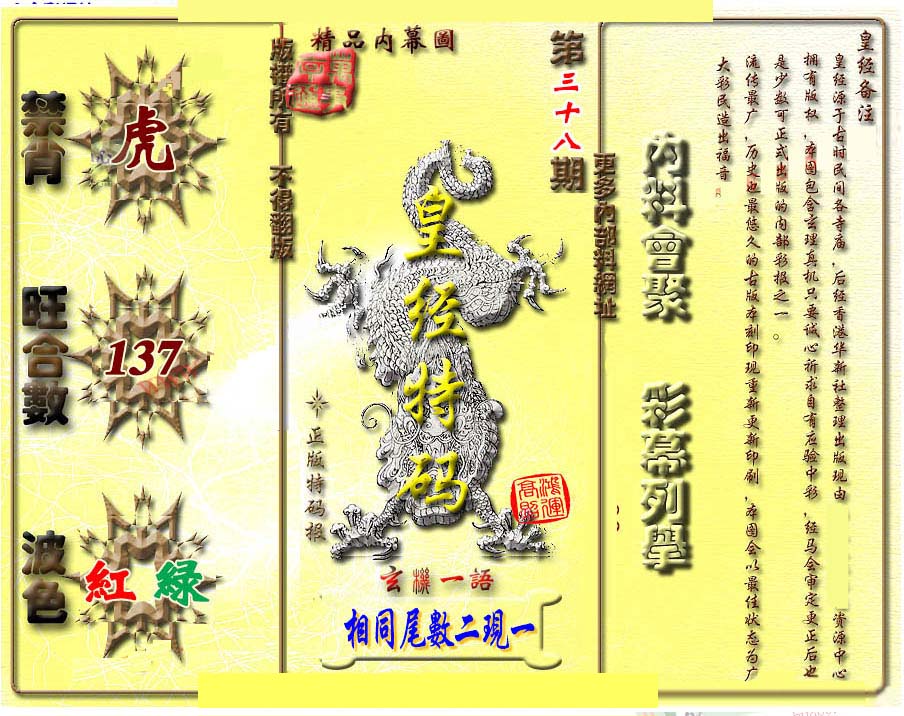 精品内幕圖
第三十八期
版權所有 不得翻版
更多內部料網址
禁肖
虎
旺合數
137
波色
紅 綠
皇经特码
正版特码报
鴻運高照
玄機一語
相同尾數二現一
内料會聚
彩幕列舉
皇经备注
皇经源于古时民间各寺庙，后经香港华新社整理出版现由 资源中心
拥有版权，本图包含玄理真机只要诚心祈求自有应验中彩，经马会审定更正后也
是少数可正式出版的内部彩报之一。
流传最广，历史也最悠久的古版本刻印现重新更新印刷，本图会以最佳状态为广
大彩民造出福音